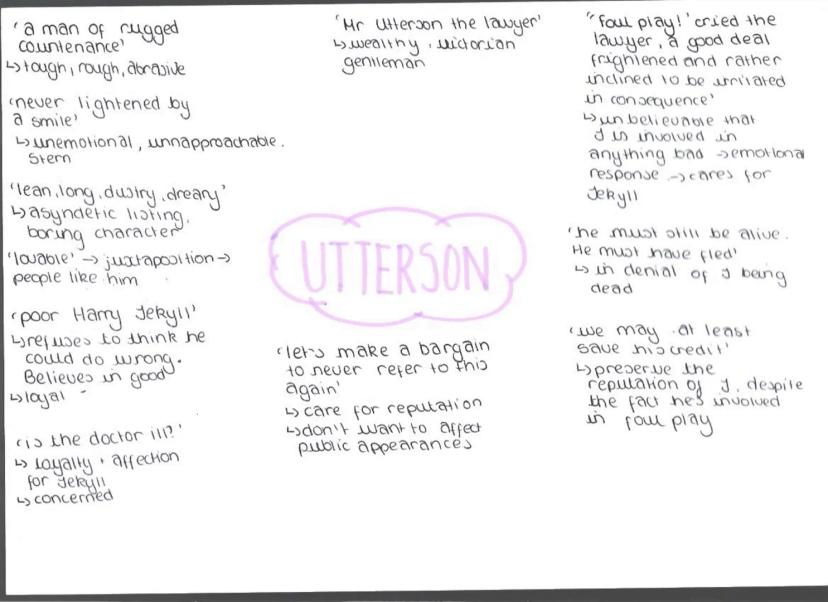 'a man of rugged
countenance'
↳tough, rough, abrasive
'never lightened by
a smile'
↳unemotional, unnapproachable.
stern
'lean, long, dusty, dreary'
↳asyndetic listing,
boring character
'lovable' → juxtaposition →
people like him
'poor Harry Jekyll'
↳refuses to think he
could do wrong.
Believes in good
↳loyal
'is the doctor ill?'
↳ loyalty + affection
for Jekyll
↳concerned
'Mr Utterson the lawyer'
↳wealthy, victorian
gentleman
UTTERSON
'let's make a bargain
to never refer to this
again'
↳ care for reputation
↳don't want to affect
public appearances
"foul play!' cried the
lawyer, a good deal
frightened and rather
inclined to be irritated
in consequence'
↳unbelievable that
J is involved in
anything bad →emotional
response →cares for
Jekyll
'he must still be alive.
He must have fled'
↳ in denial of J being
dead
'we may at least
save his credit'
↳preserve the
reputation of J, despite
the fact hes involved
in foul play